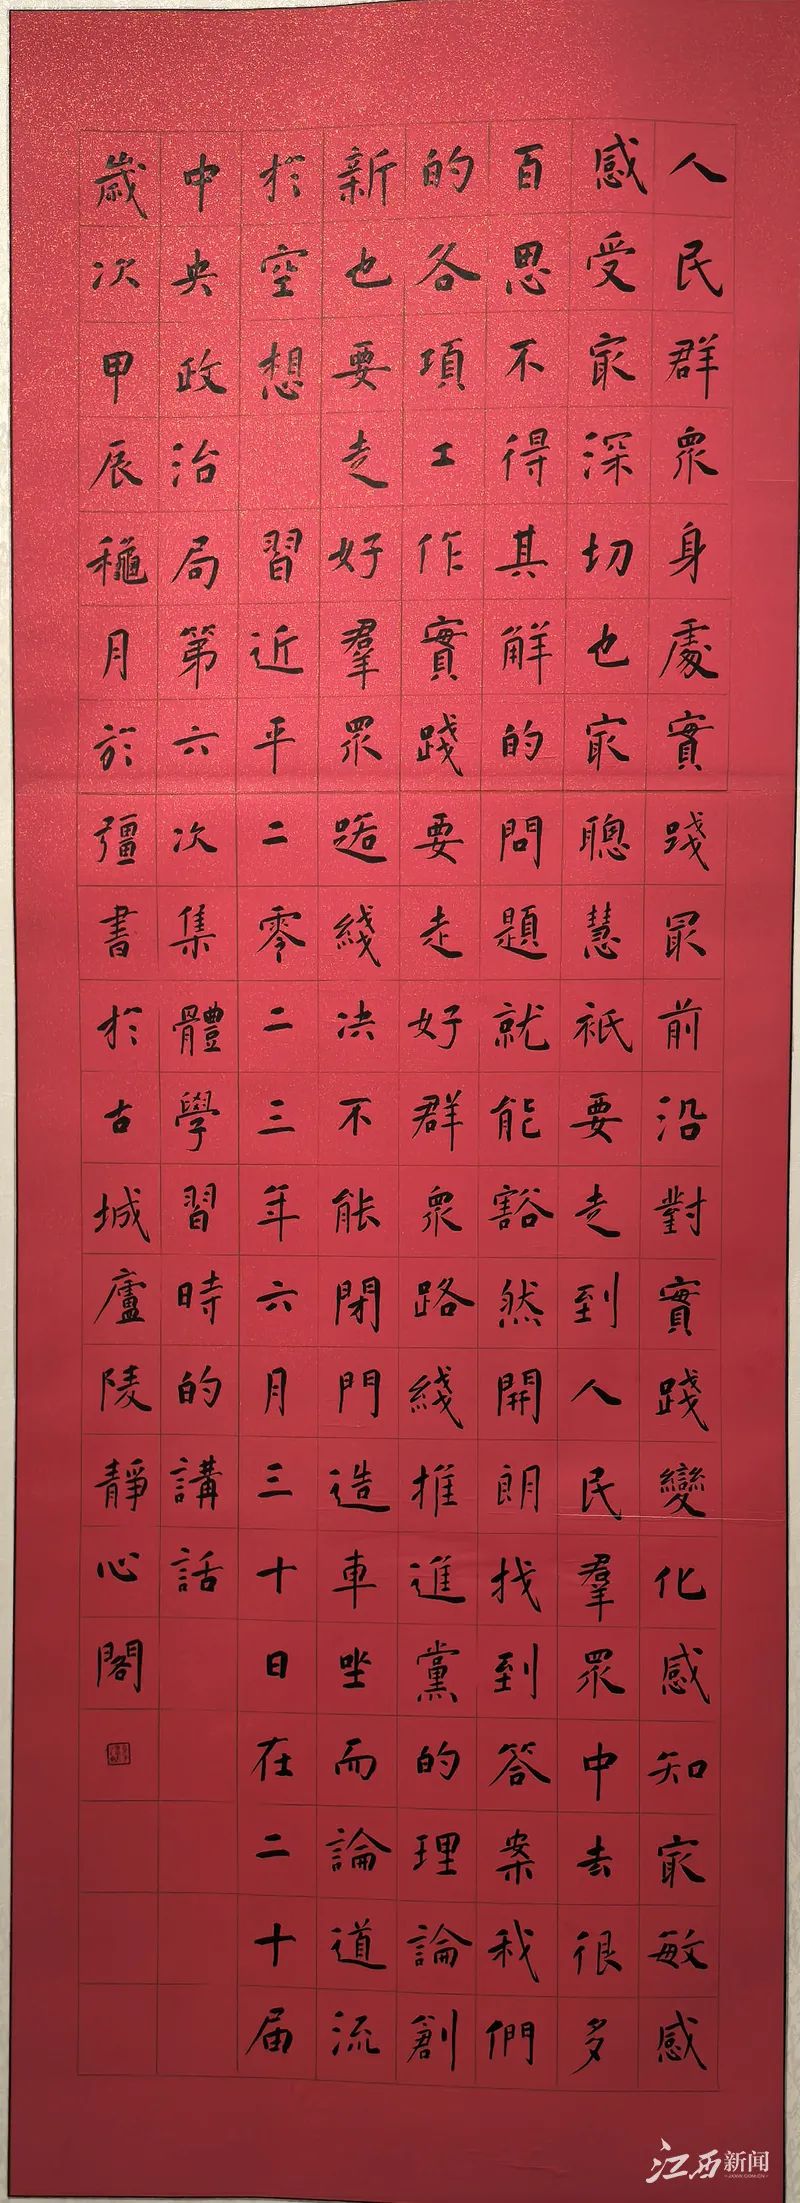 人民群眾身處實踐最前沿對實踐變化感知最敏感
感受最深切也最聰慧衹要走到人民羣眾中去很多
百思不得其解的問題就能豁然開朗找到答案我們
的各項工作實踐要走好群眾路綫推進黨的理論創
新也要走好羣眾路綫决不能閉門造車坐而論道流
於空想 習近平二零二三年六月三十日在二十届
中央政治局第六次集體學習時的講話
歲次甲辰龝月於彊書於古城廬陵靜心閣
江西新闻
JXXW.COM.CN